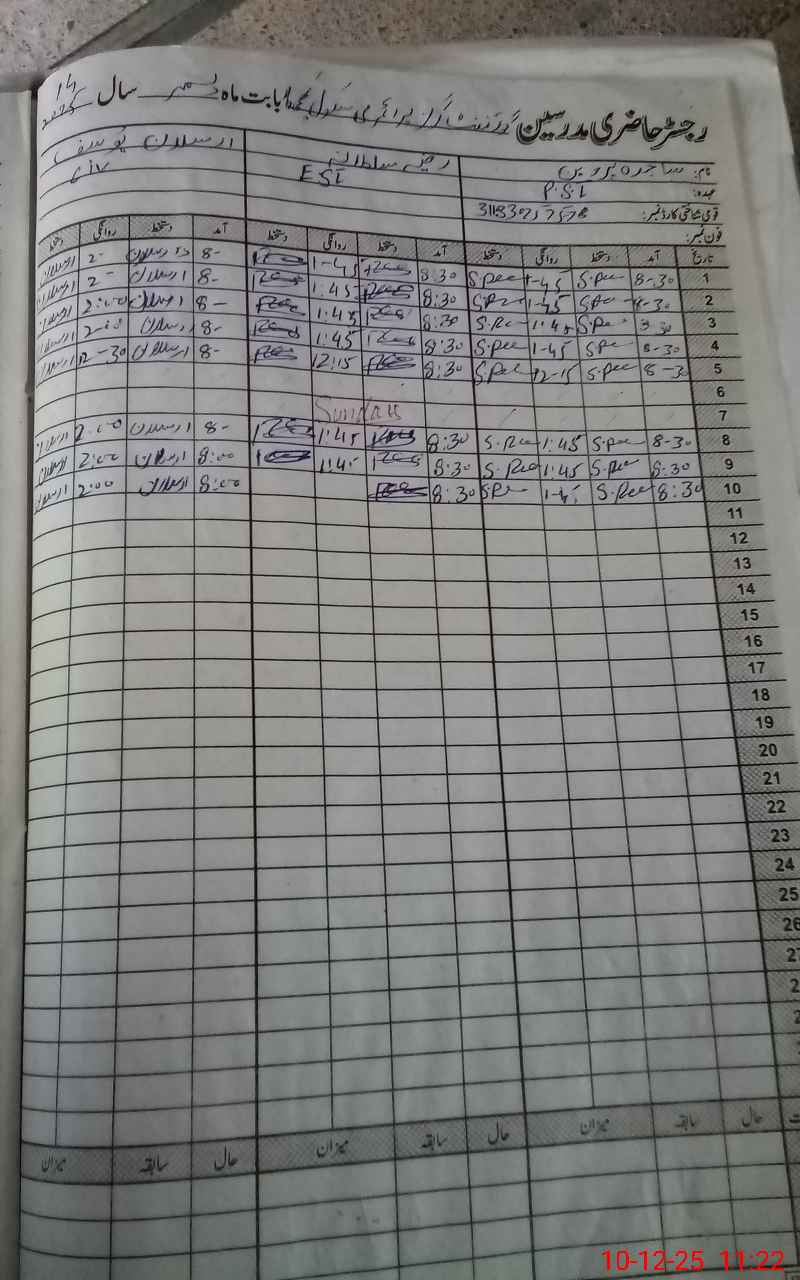 رجسٹر حاضری مدرسین گورنمنٹ گرلز پرائمری سکول بابت ماہ دسمبر سال 2025
نام: ساجدہ پروین رضیہ سلطانہ ارسلان یوسف
عہدہ: P.S.T EST CIV
قومی شناختی کارڈ نمبر:
فون نمبر:
تاریخ آمد دستخط روانگی دستخط آمد دستخط روانگی دستخط آمد دستخط روانگی دستخط
1 8-30 S.Pee 1-45 S.Pee 8:30 1-45 8- ارسلان 2- ارسلان
2 8-30 S.Pee 1-45 S.Pee 8:30 1:45 8- ارسلان 2- ارسلان
3 8-30 S.Pee 1:45 S.Pee 8:30 1:45 8- ارسلان 2:00 ارسلان
4 8-30 S.Pee 1-45 S.Pee 8:30 1:45 8- ارسلان 2:00 ارسلان
5 8-30 S.Pee 12-15 S.Pee 8:30 12:15 8- ارسلان 12-30 ارسلان
6
7 Sunday
8 8-30 S.Pee 1:45 S.Pee 8:30 1:45 8- ارسلان 2:00 ارسلان
9 8:30 S.Pee 1:45 S.Pee 8:30 1:45 8:00 ارسلان 2:00 ارسلان
10 8:30 S.Pee 1-45 S.Pee 8:30 8:00 ارسلان 2:00 ارسلان
11
12
13
14
15
16
17
18
19
20
21
22
23
24
25
26
27
حال سابقہ میزان حال سابقہ میزان حال سابقہ میزان
10-12-25 11:22